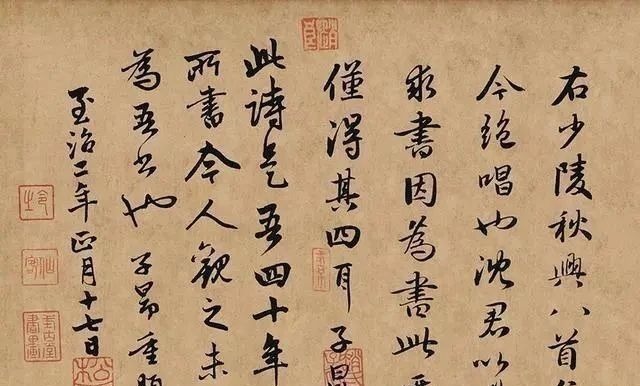 右少陵秋興八首
今絶唱也沈君以
求書因為書此
僅得其四耳子昂
此詩是吾四十年
所書今人觀之未
為吾書也子昂重題
至治二年正月十七日